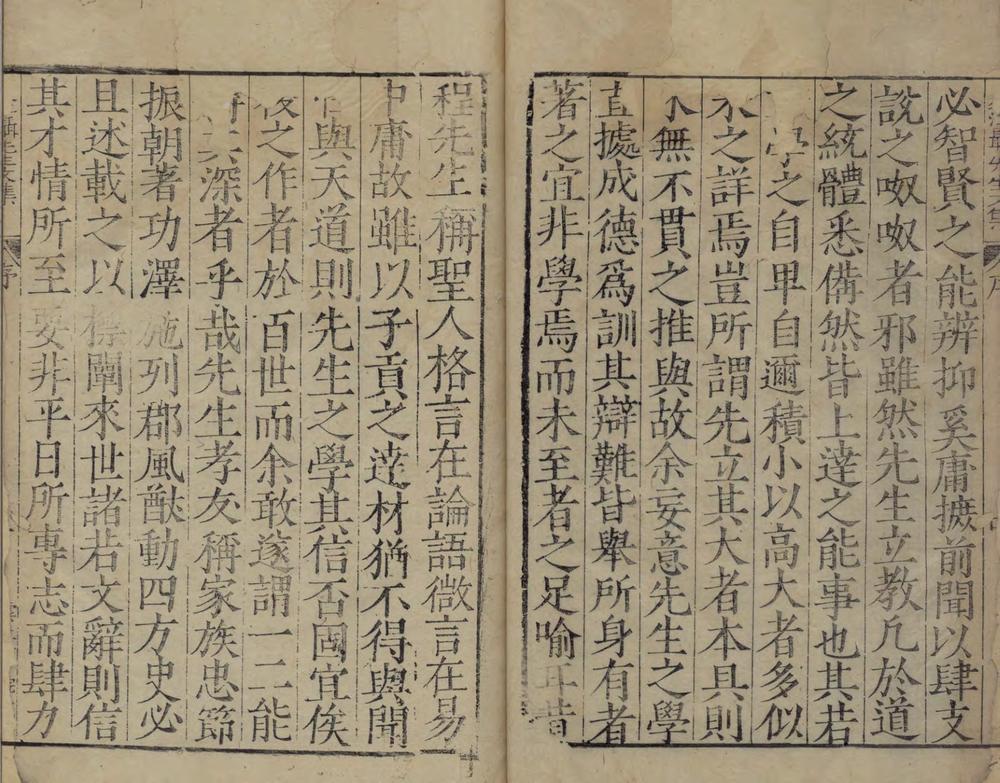 必智賢之能辨抑奚庸摭前聞以肆支
說之呶呶者邪雖然先生立教凡於道
之統體悉備然皆上達之能事也其若
學之自卑自邇積小以高大者多似
未之詳焉豈所謂先立其大者本具則
末無不貫之推與故余妄意先生之學
直據成德爲訓其辯難皆舉所身有者
著之宜非學焉而未至者之足喻耳昔
程先生稱聖人格言在論語微言在易
中庸故雖以子貢之達材猶不得與聞
性與天道則先生之學其信否國宜俟
後之作者於百世而余敢遂謂一二能
深者乎哉先生孝友稱家族忠節
振朝著功澤施列郡風猷動四方史必
且述載之以標闡來世諸若文辭則信
其才情所至要非平日所專志而肆力
序